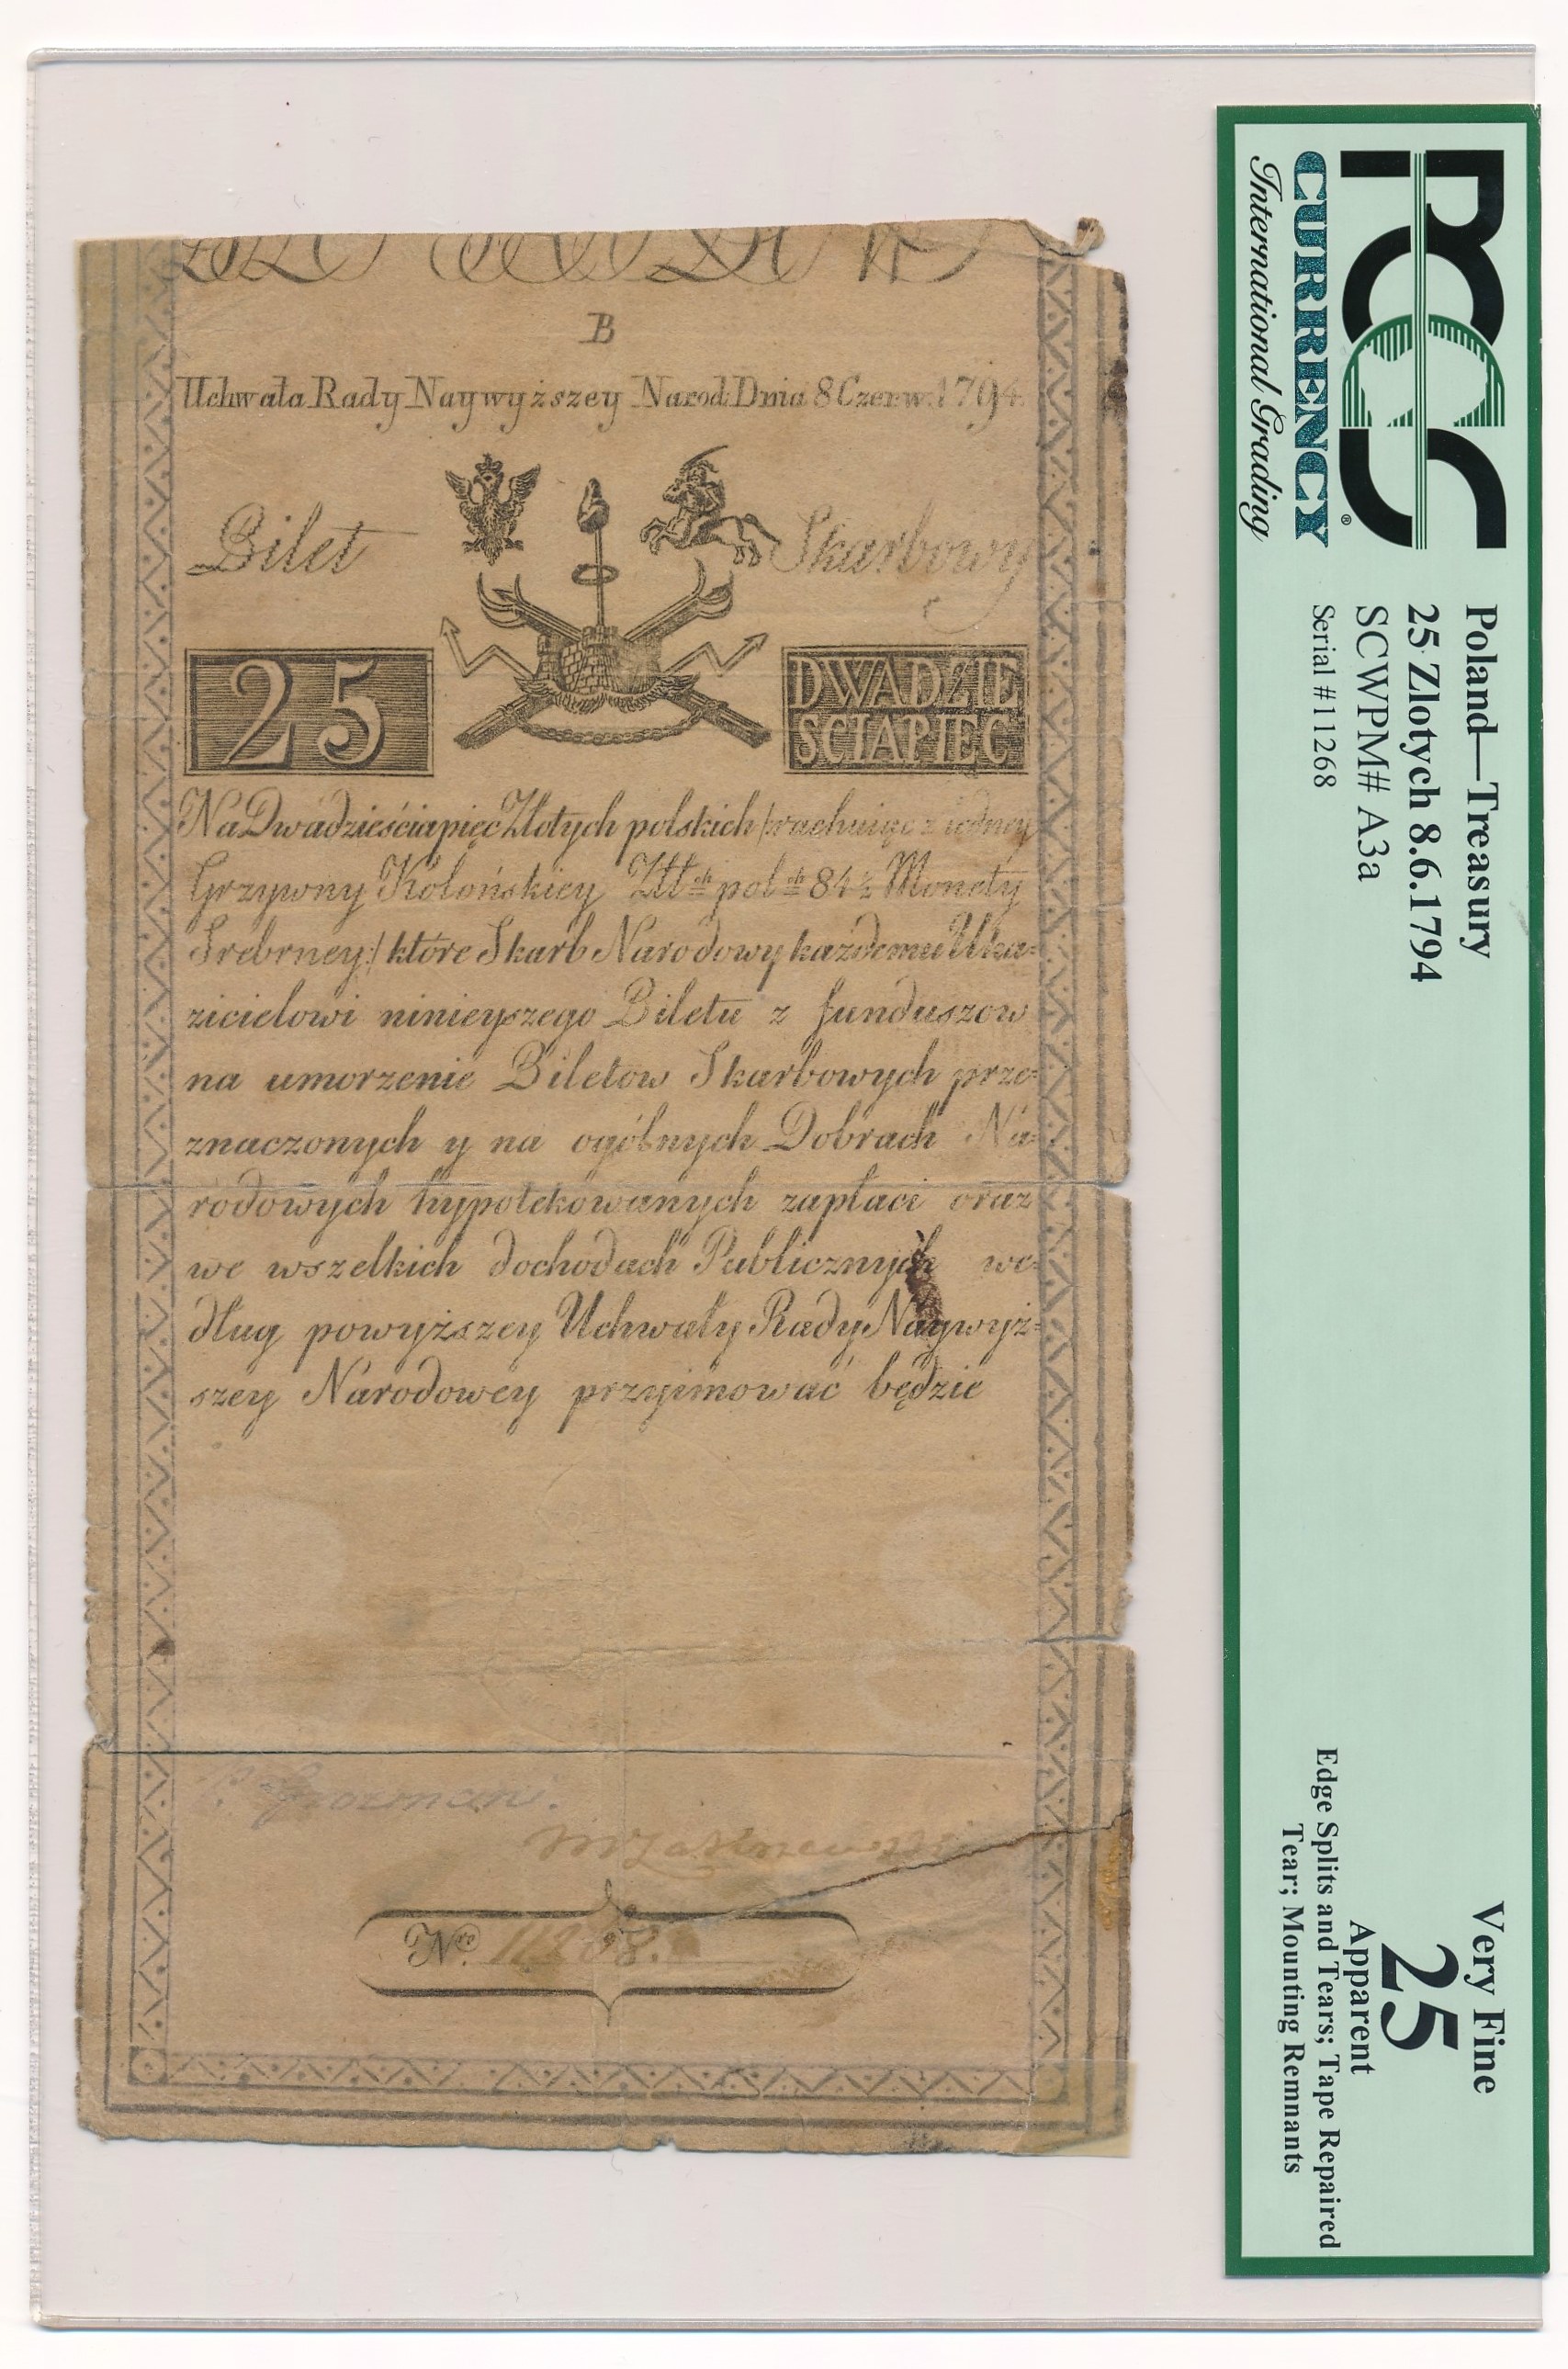 B
Uchwała Rady Naywyższey Narod: Dnia 8 Czerw. 1794.
Bilet Skarbowy
25 DWADZIE
SCIAPIĘC
Na Dwadzieściapięc Złotych polskich /:rachuiąc z iedney
Grzywny Kolońskiey Złł: ch pol: ch 84½ Monety
Srebrney:/ które Skarb Narodowy każdemu Uka=
zicielowi ninieyszego Biletu z funduszow
na umorzenie Biletow Skarbowych prze=
znaczonych y na ogólnych Dobrach Na=
rodowych hypotekowanych zapłaci oraz
we wszelkich dochodach Publicznych we=
dług powyższey Uchwały Rady Naywyż=
szey Narodowey przyimować będzie
Nro. 11268.
PCGS®
CURRENCY
International Grading
Poland—Treasury
25 Zlotych 8.6.1794
SCWPM# A3a
Serial #11268
Very Fine
25
Apparent
Edge Splits and Tears; Tape Repaired
Tear; Mounting Remnants